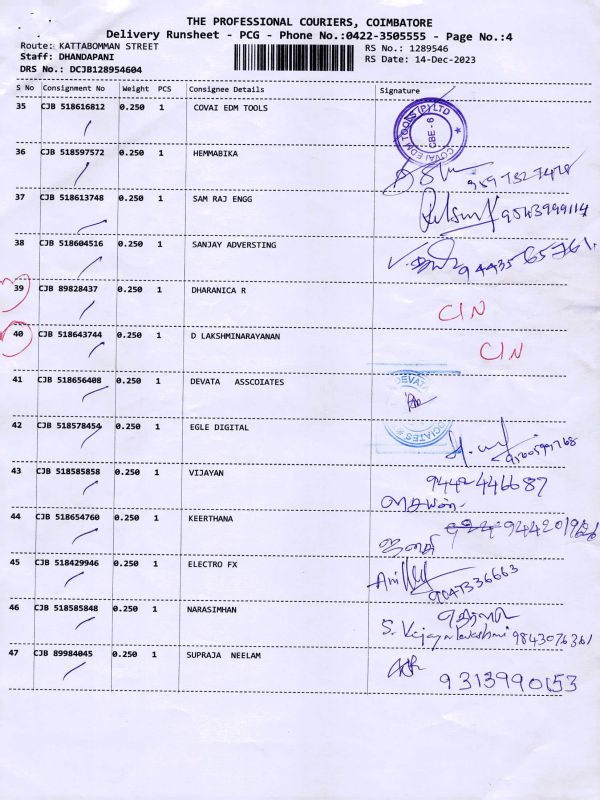 THE PROFESSIONAL COURIERS, COIMBATORE
Delivery Runsheet - PCG - Phone No.:0422-3505555 - Page No.:4
Route: KATTABOMMAN STREET
Staff: DHANDAPANI
DRS No.: DCJB128954604
RS No.: 1289546
RS Date: 14-Dec-2023
S No Consignment No Weight PCS Consignee Details Signature
35 CJB 518616812 0.250 1 COVAI EDM TOOLS
COVAI EDM TOOLS (P) LTD
CBE-6
36 CJB 518597572 0.250 1 HEMMABIKA
37 CJB 518613748 0.250 1 SAM RAJ ENGG
9543999114
38 CJB 518604516 0.250 1 SANJAY ADVERSTING
9443565761
39 CJB 89828437 0.250 1 DHARANICA R
CIN
40 CJB 518643744 0.250 1 D LAKSHMINARAYANAN
CIN
41 CJB 518656408 0.250 1 DEVATA ASSCOIATES
DEVATA
42 CJB 518578454 0.250 1 EGLE DIGITAL
43 CJB 518585858 0.250 1 VIJAYAN
9442446687
44 CJB 518654760 0.250 1 KEERTHANA
45 CJB 518429946 0.250 1 ELECTRO FX
9047336663
46 CJB 518585848 0.250 1 NARASIMHAN
S. Vijayalakshmi 9843076361
47 CJB 89984045 0.250 1 SUPRAJA NEELAM
9313990153